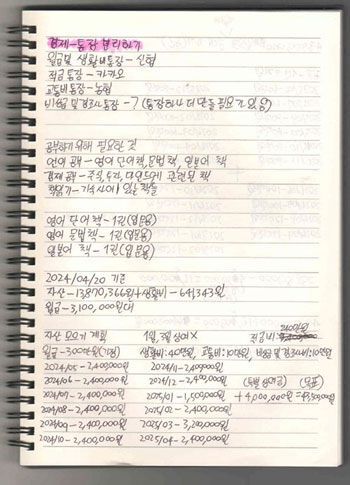 경제-통장 분리하기
월급 및 생활비통장 - 신협
적금통장 - 카카오
교통비통장 - 농협
비상금 및 경조사통장 - ? (통장하나 더 만들 필요가 있음)
공부하기 위해 필요한 것
언어 공부 - 영어 단어책, 문법책, 일본어 책
경제 공부 - 주식, 투자, 마인드에 관련된 책
영어 단어 책 - 1권(입문용)
영어 문법 책 - 1권(입문용)
일본어 책 - 1권(입문용)
2024/04/20 기준
자산 - 13,870,366원 + 생활비 - 641,343원
월급 - 3,100,000원대
2400만원
자산 모으기 계획 1일, 3월 상여X 적금비
월급 - 300만원(가정) 생활비:40만원, 교통비:10만원, 비상금 및 경조사비:10만원
2024/05 - 2,400,000원 2024/11 - 2,400,000원
2024/06 - 2,400,000원 2024/12 - 2,400,000원 (목표)
2024/07 - 2,400,000원 2025/01 - 1,500,000원 + 4,000,000원
2024/08 - 2,400,000원 2025/02 - 2,400,000원
2024/09 - 2,400,000원 2025/03 - 3,200,000원
2024/10 - 2,400,000원 2025/04 - 2,400,000원